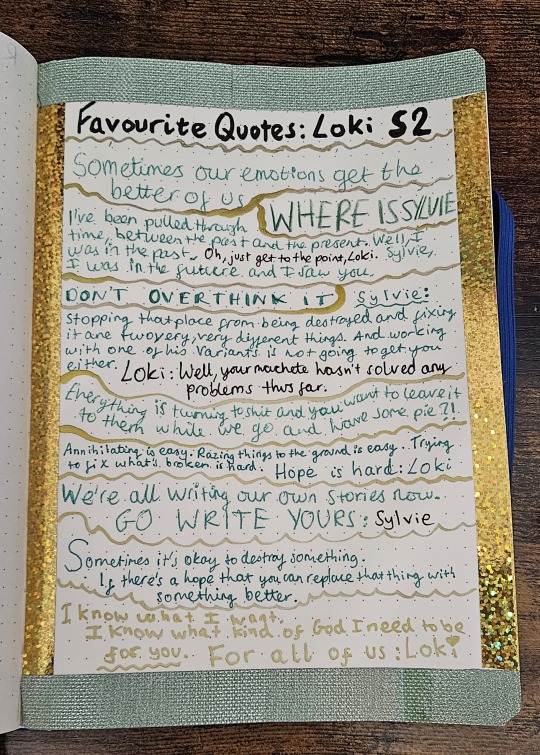 Favourite Quotes: Loki S2
Sometimes our emotions get the
better of us
WHERE IS SYLVIE
I've been pulled through
time, between the past and the present. Well, I
was in the past. Oh, just get to the point, Loki. Sylvie,
I was in the future and I saw you.
DON'T OVERTHINK IT
Sylvie:
Stopping that place from being destroyed and fixing
it are two very, very different things. And working
with one of his variants is not going to get you
either. Loki: Well, your machete hasn't solved any
problems thus far.
Everything is turning to shit and you want to leave it
to them while we go and have some pie?!
Annihilating is easy. Razing things to the ground is easy. Trying
to fix what's broken is hard. Hope is hard: Loki
We're all writing our own stories now.
GO WRITE YOURS: Sylvie
Sometimes it's okay to destroy something.
If there's a hope that you can replace that thing with
something better.
I know what I want.
I know what kind of God I need to be
for you. For all of us: Loki